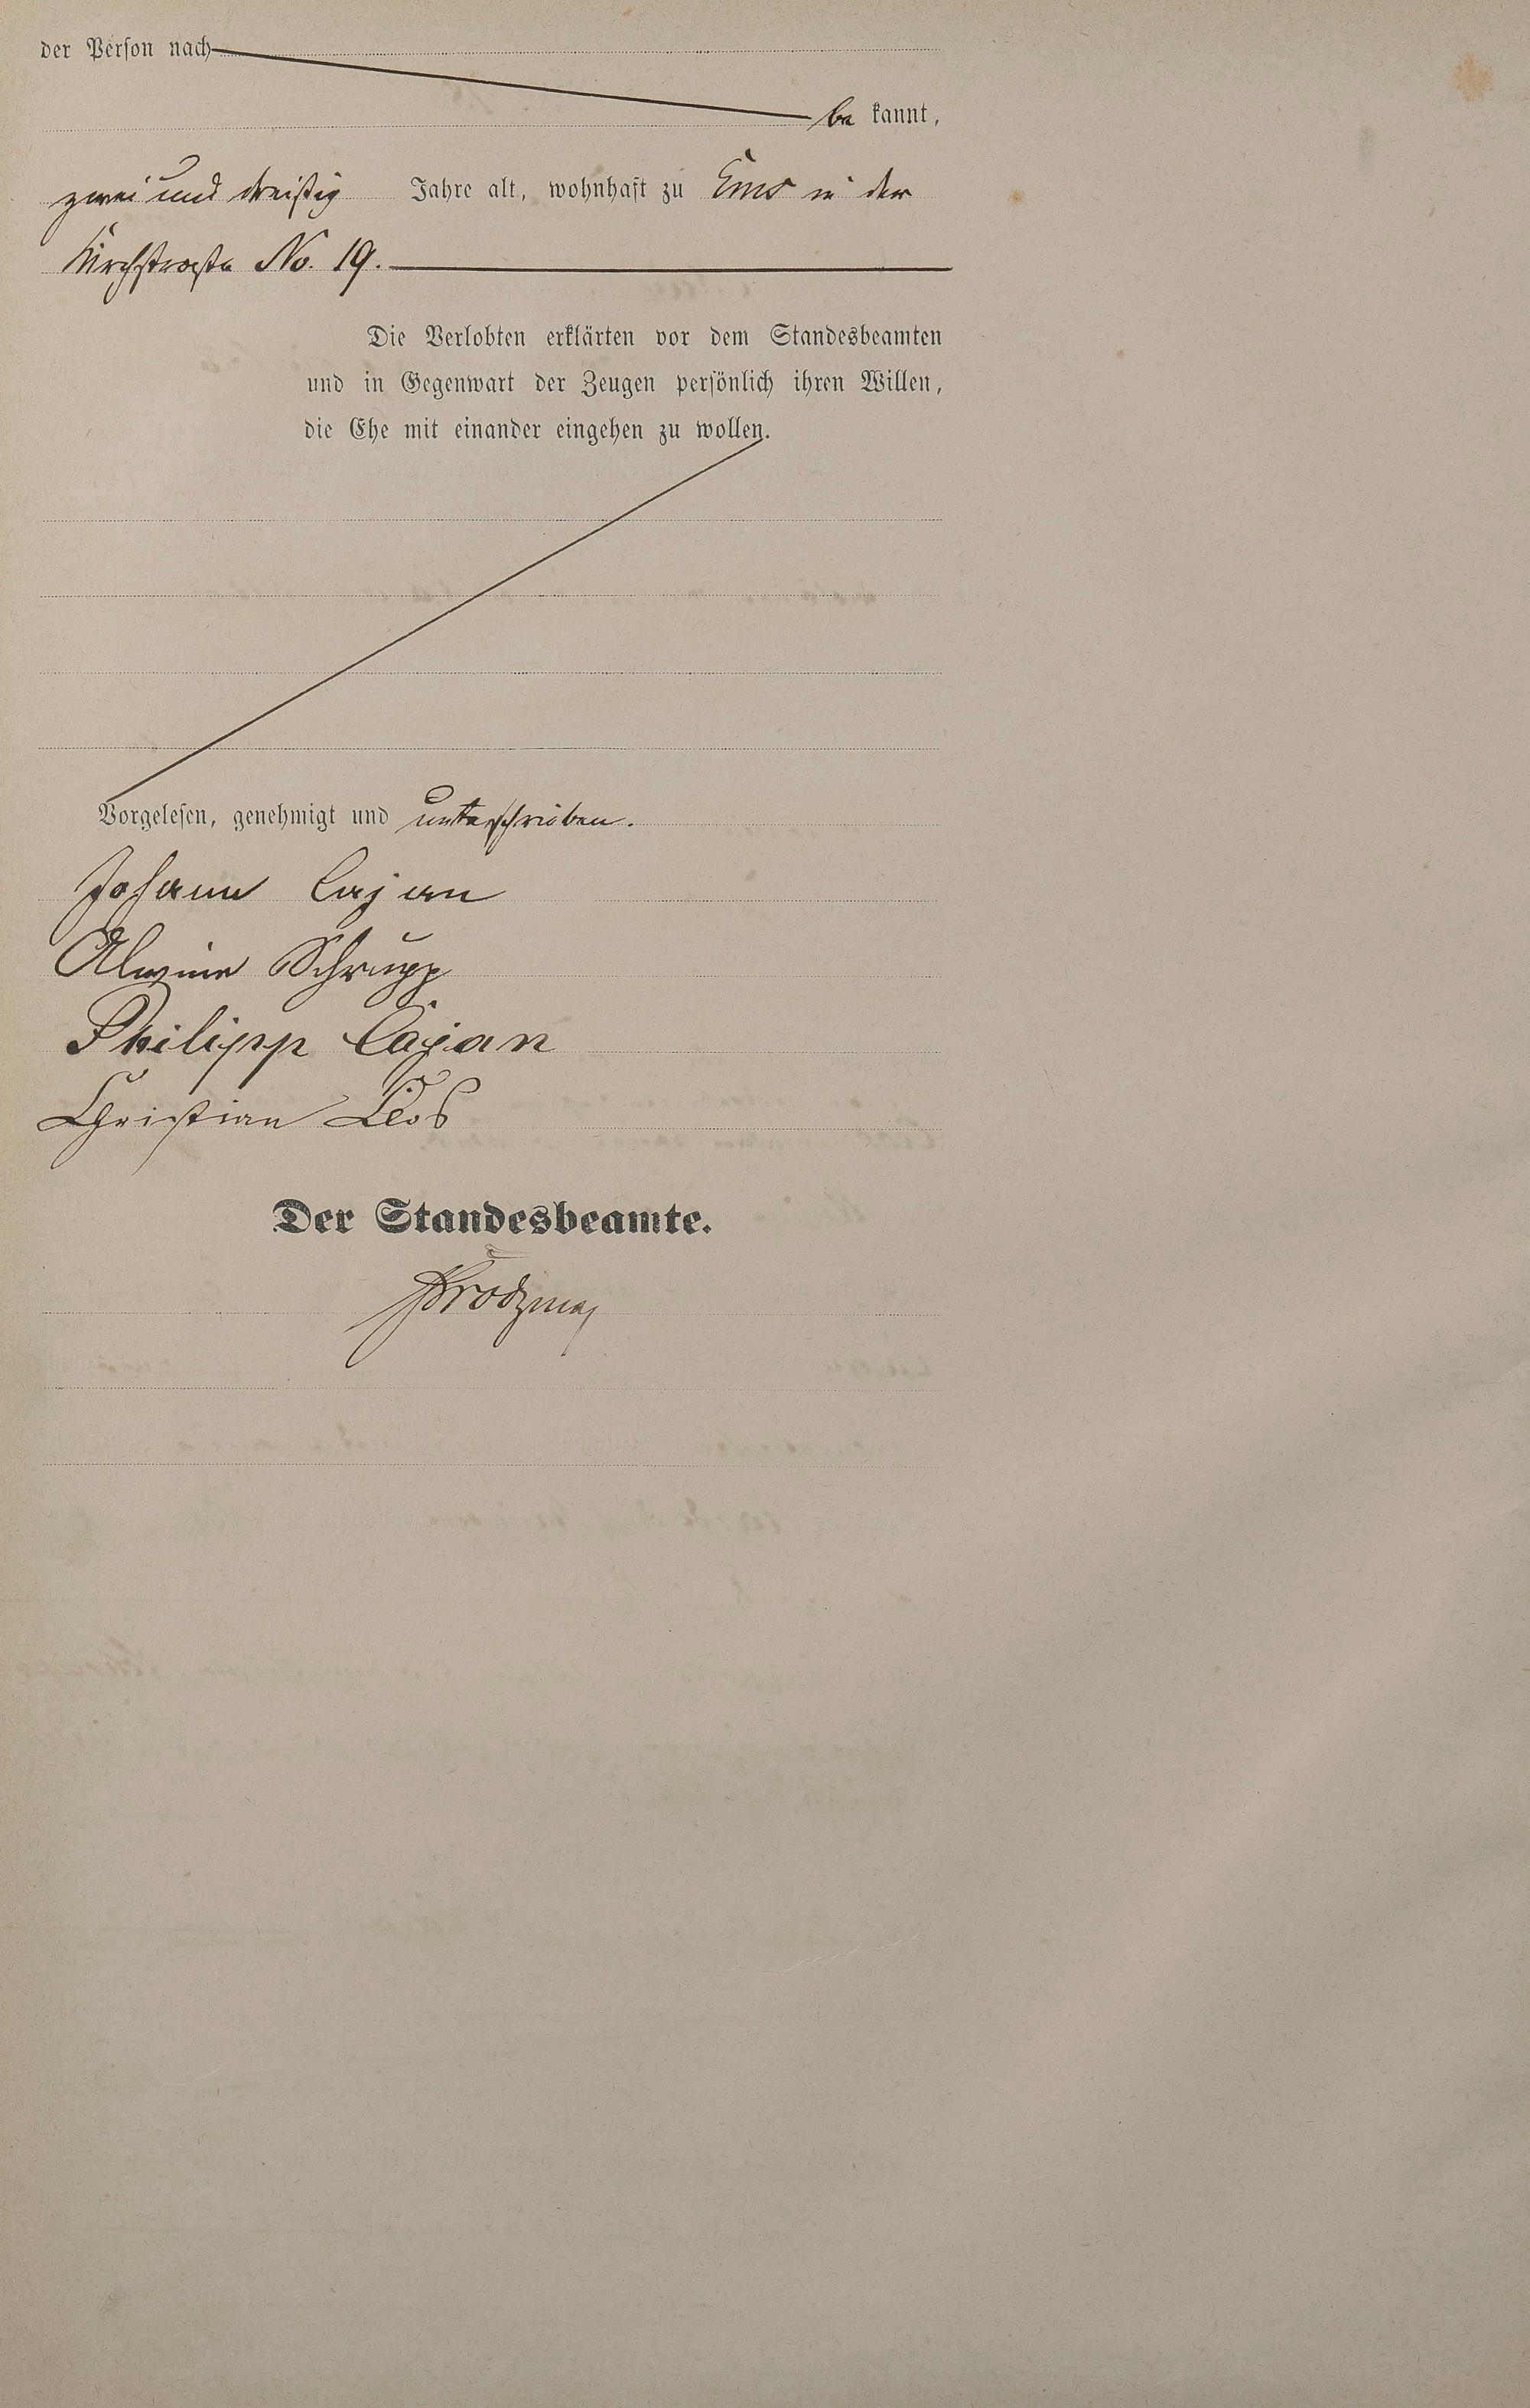 der Person nach
be kannt,
zwei und dreißig Jahre alt, wohnhaft zu Ems in der
Kirchstraße No. 19.
Die Verlobten erklärten vor dem Standesbeamten
und in Gegenwart der Zeugen persönlich ihren Willen,
die Ehe mit einander eingehen zu wollen.
Vorgelesen, genehmigt und unterschrieben.
Johann Cajan
Alwine Schrupp
Philipp Cajan
Christian Clos
Der Standesbeamte.